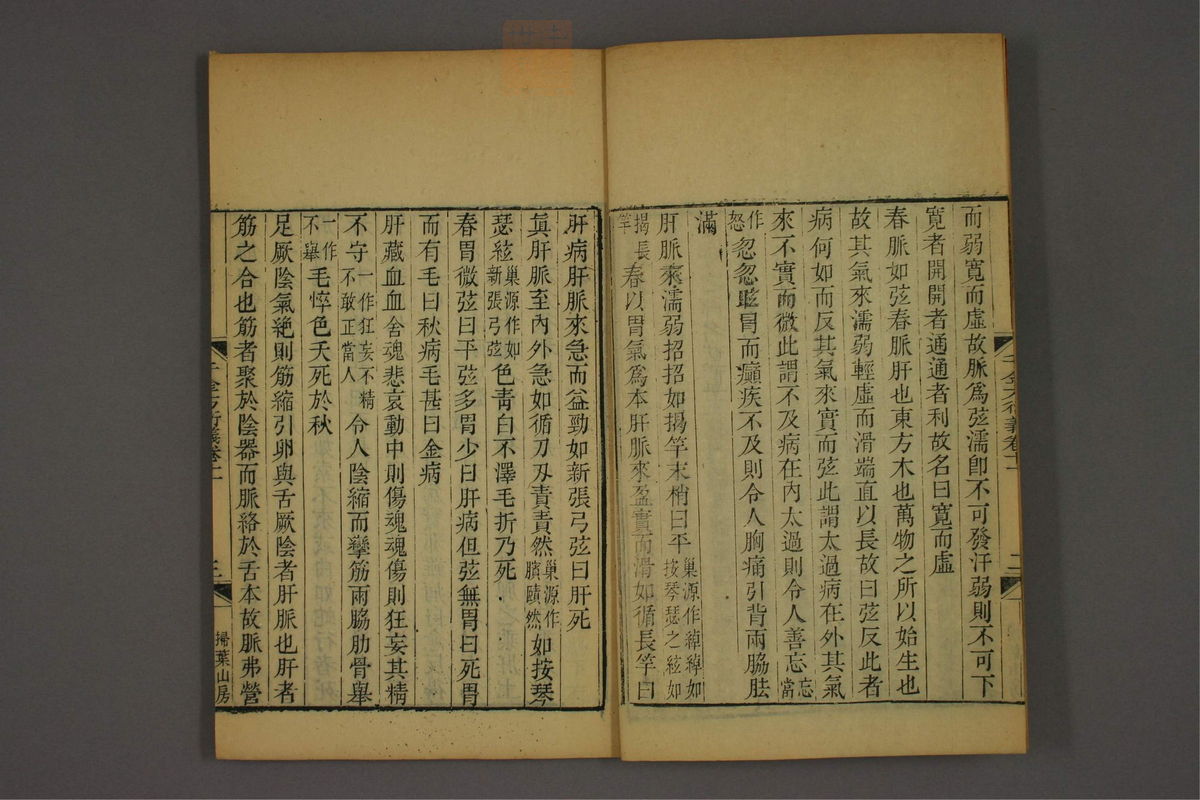 而弱寛而虛故脈爲弦濡卽不可發汗弱則不可下
寛者開開者通通者利故名曰寛而虛
春脈如弦春脈肝也東方木也萬物之所以始生也
故其氣來濡弱輕虛而滑端直以長故曰弦反此者
病何如而反其氣來實而弦此謂太過病在外其氣
來不實而微此謂不及病在內太過則令人善忘忘當
作怒忽忽眩冒而癲疾不及則令人胸痛引背兩脇胠
滿
肝脈來濡弱招招如揭竿末梢曰平巢源作綽綽如按琴瑟之絃如
揭長竿春以胃氣爲本肝脈來盈實而滑如循長竿曰
千金方衍義卷十一
二
肝病肝脈來急而益勁如新張弓弦曰肝死
眞肝脈至內外急如循刀刃責責然巢源作賾賾然如按琴
瑟絃巢源作如新張弓弦色靑白不澤毛折乃死
春胃微弦曰平弦多胃少曰肝病但弦無胃曰死胃
而有毛曰秋病毛甚曰金病
肝藏血血舍魂悲哀動中則傷魂魂傷則狂妄其精
不守一作狂妄不精不敢正當人令人陰縮而攣筋兩脇肋骨舉
一作不舉毛悴色夭死於秋
足厥陰氣絶則筋縮引卵與舌厥陰者肝脈也肝者
筋之合也筋者聚於陰器而脈絡於舌本故脈弗營
千金方衍義卷十一
三
掃葉山房